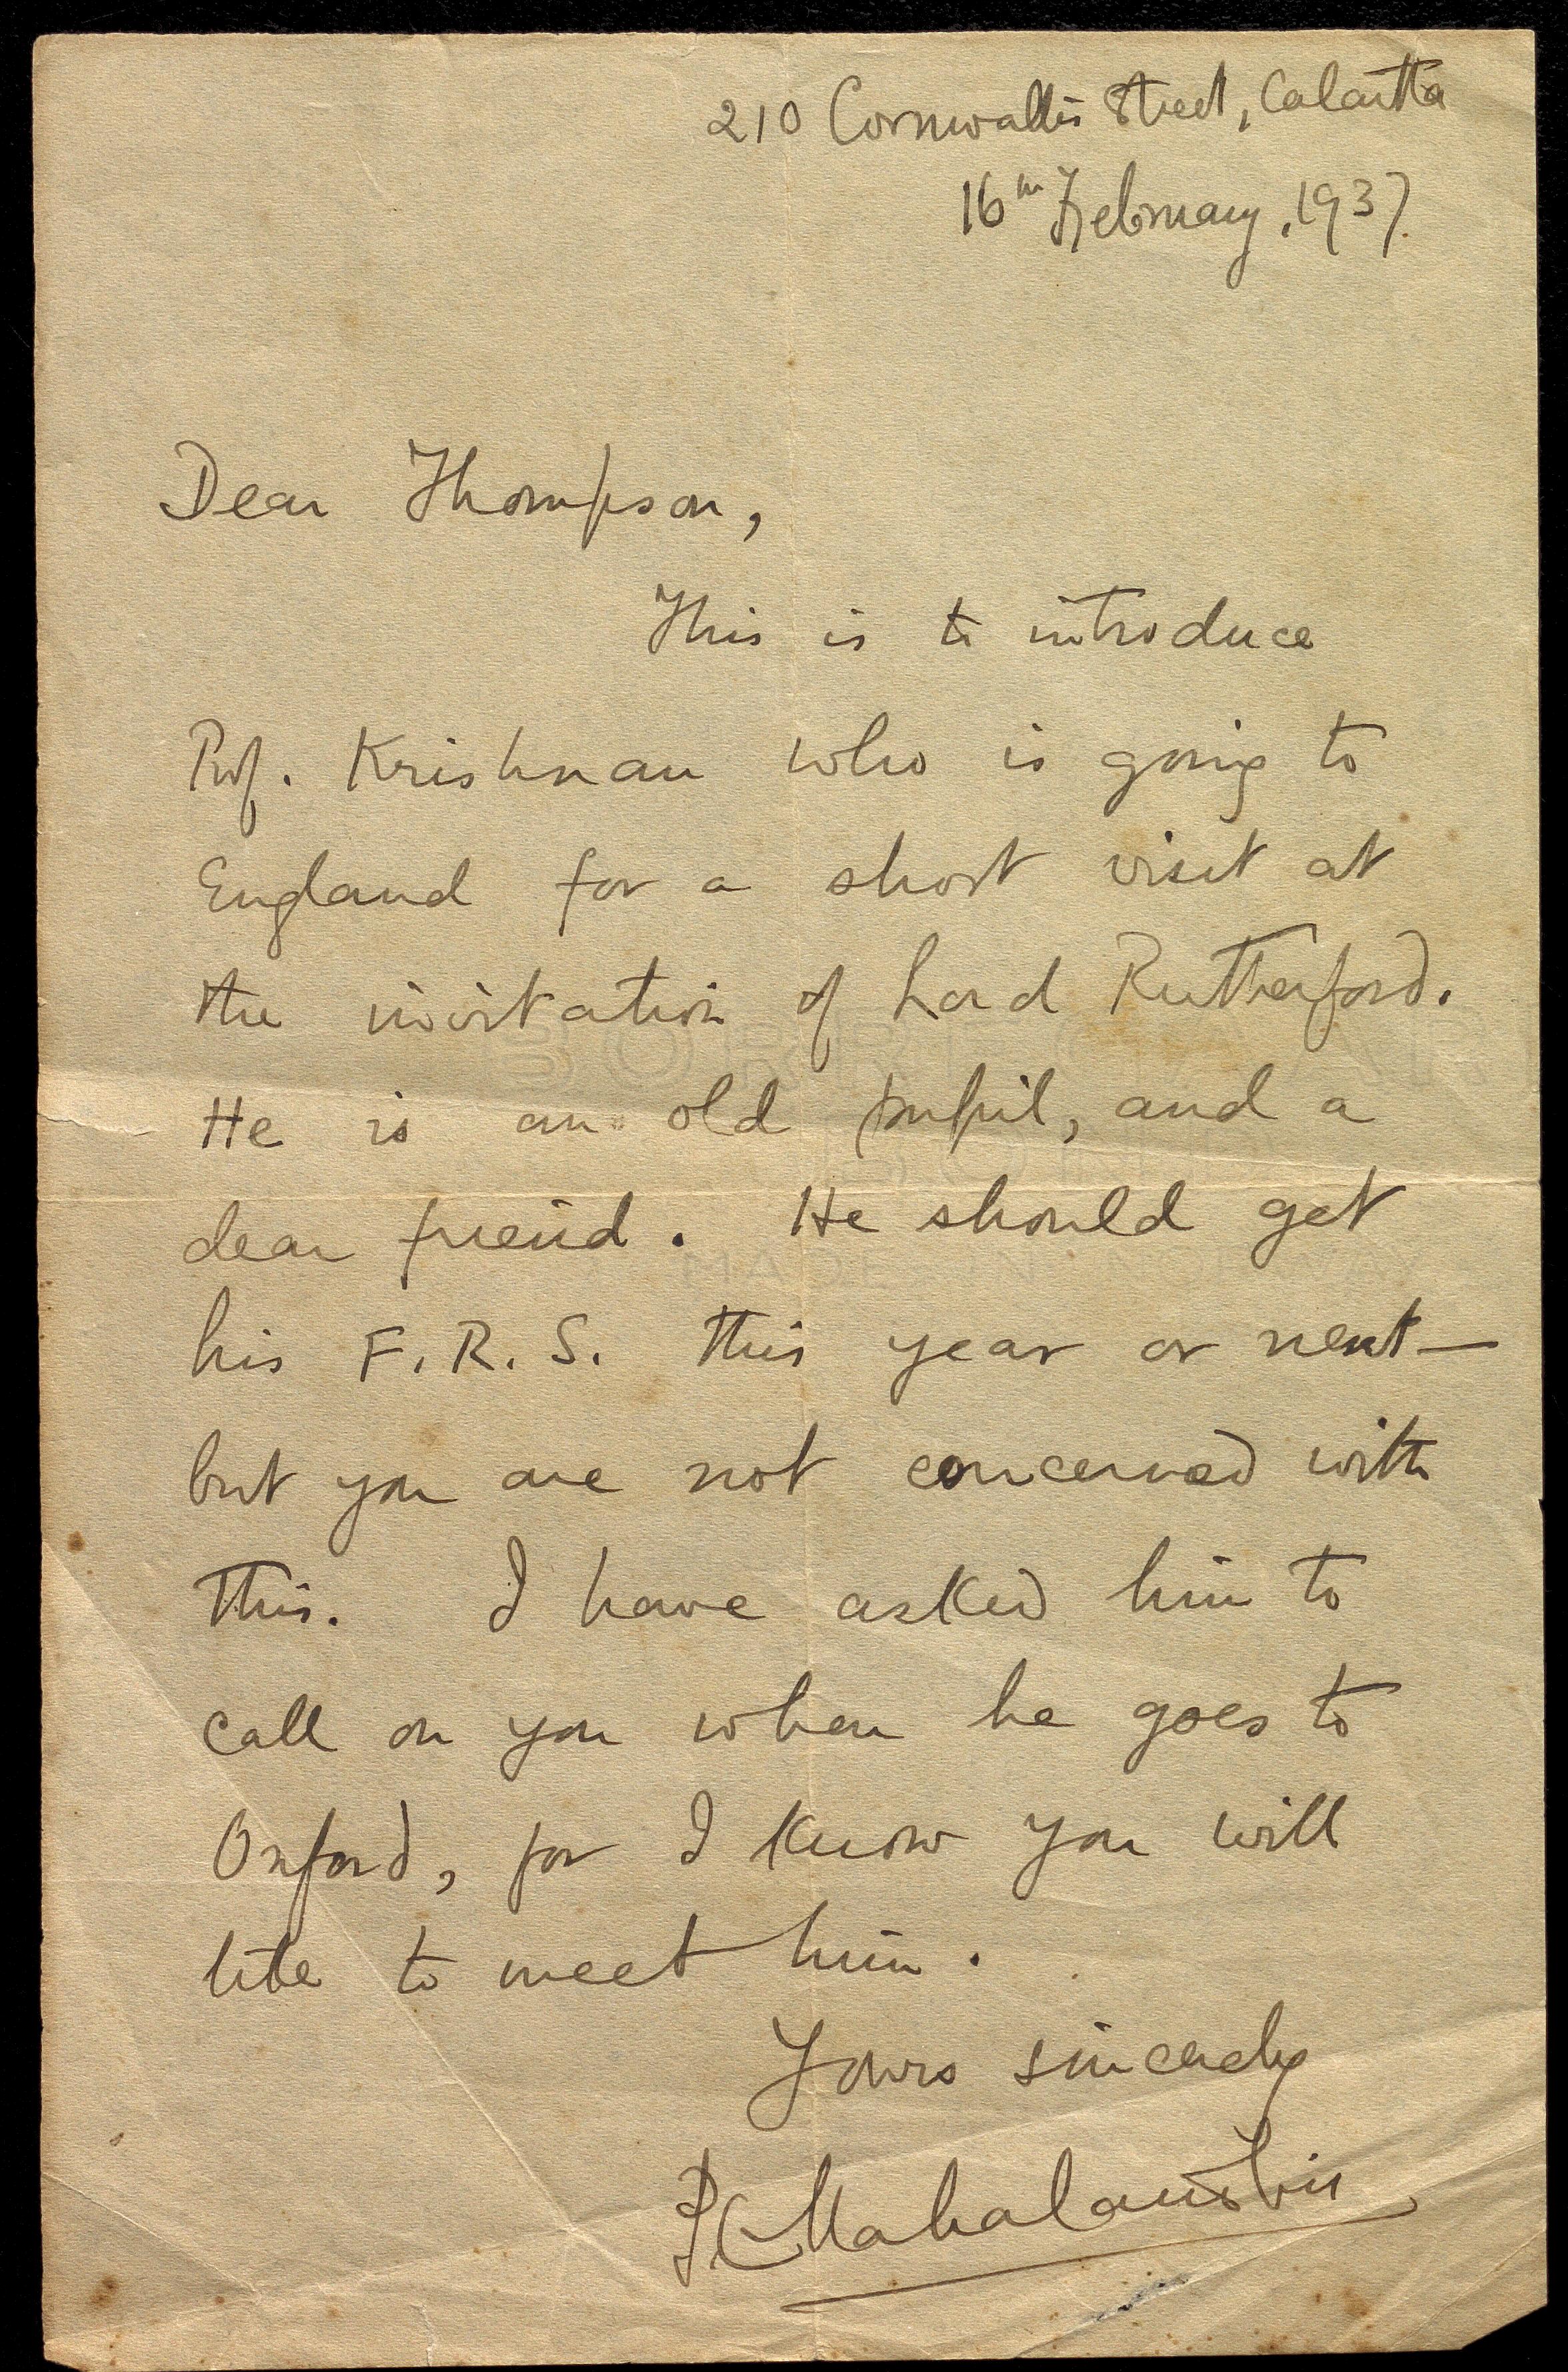 210 Cornwallis Street, Calcutta
16th February, 1937.
Dear Thompson,
This is to introduce
Prof. Krishnan who is going to
England for a short visit at
the invitation of Lord Rutherford.
He is an old pupil, and a
dear friend. He should get
his F.R.S. this year or next—
but you are not concerned with
this. I have asked him to
call on you when he goes to
Oxford, for I know you will
like to meet him.
Yours sincerely
P.C. Mahalanobis
MADE IN NORWAY